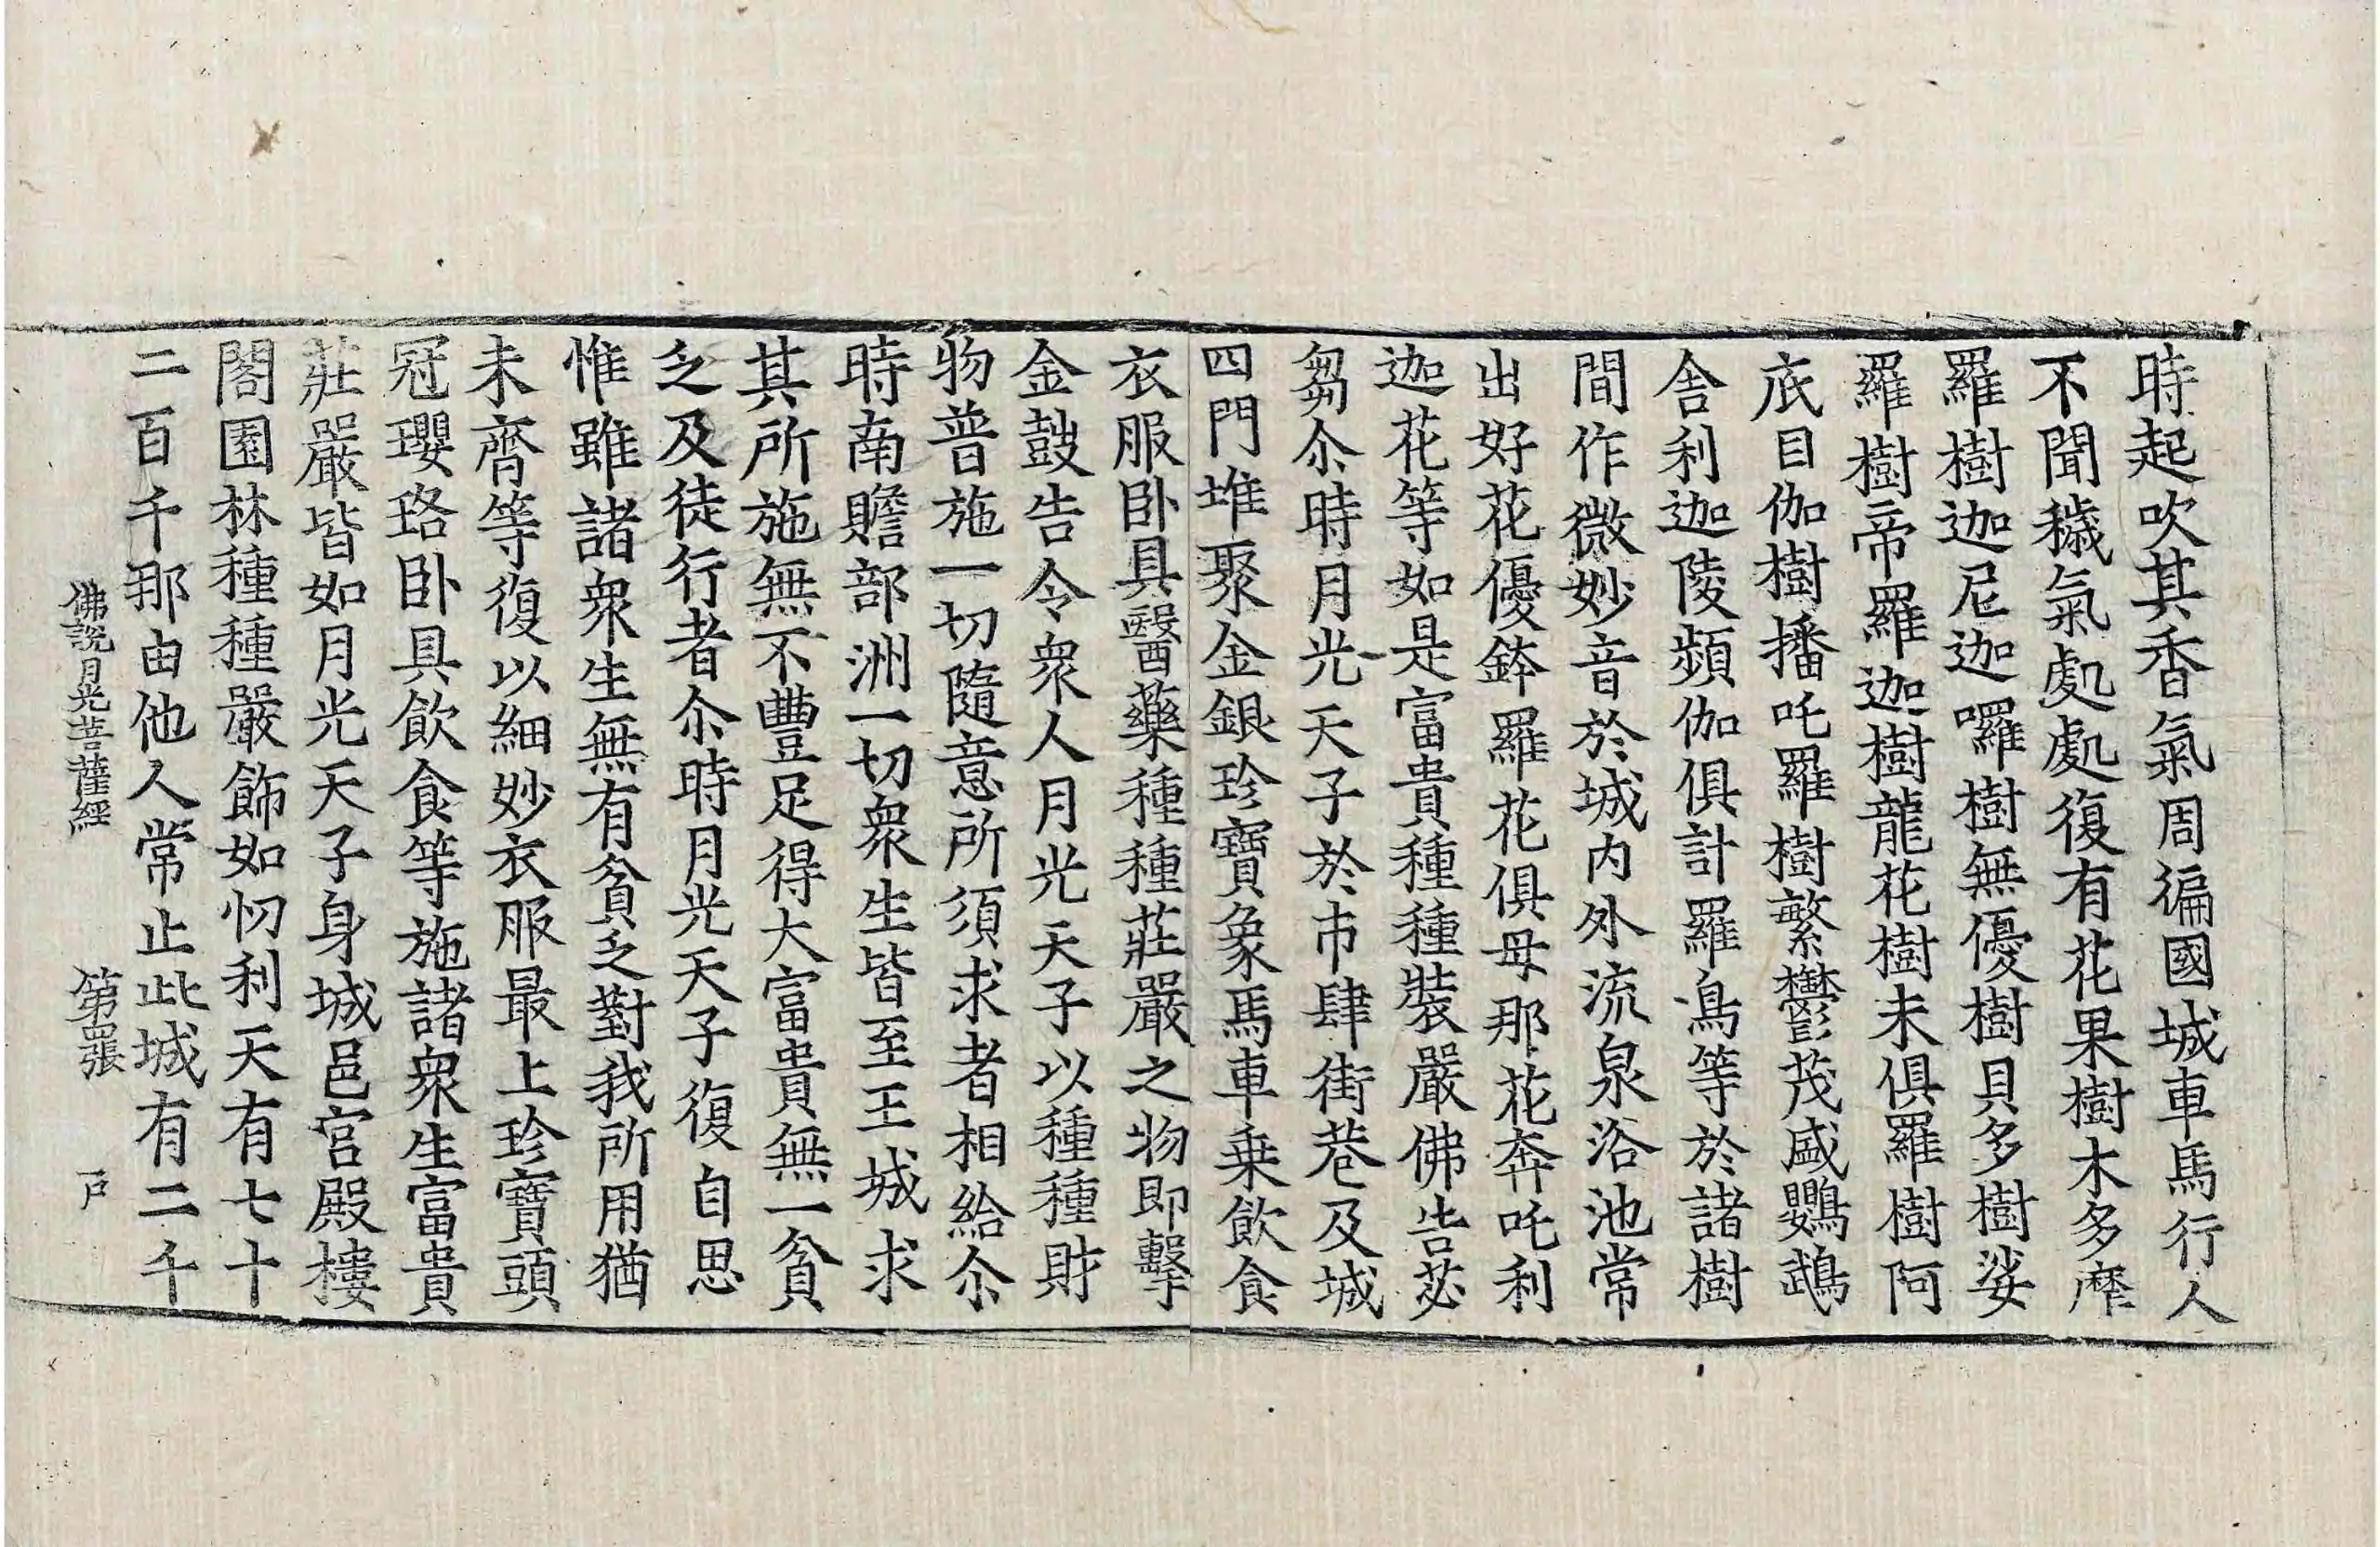 時起吹其香氣周徧國城車馬行人
不聞穢氣處處復有花果樹木多摩
羅樹迦尼迦囉樹無優樹貝多樹娑
羅樹帝羅迦樹龍花樹末俱羅樹阿
底目伽樹播吒羅樹繁鬱茂盛鸚鵡
舍利迦陵頻伽俱計羅鳥等於諸樹
間作微妙音於城內外流泉浴池常
出好花優鉢羅花俱母那花奔吒利
迦花等如是富貴種種裝嚴佛告苾
芻尒時月光天子於市肆街巷及城
四門堆聚金銀珍寶象馬車乗飲食
衣服卧具醫藥種種莊嚴之物即擊
金鼓告令衆人月光天子以種種財
物普施一切隨意所須求者相給尒
時南贍部洲一切衆生皆至王城求
其所施無不豐足得大富貴無一貧
乏及徒行者尒時月光天子復自思
惟雖諸衆生無有貧乏對我所用猶
未齊等復以細妙衣服最上珍寶頭
冠瓔珞卧具飲食等施諸衆生富貴
莊嚴皆如月光天子身城邑宮殿樓
閣園林種種嚴飾如忉利天有七十
二百千那由他人常止此城有二千
佛說月光菩薩經 第四張 户